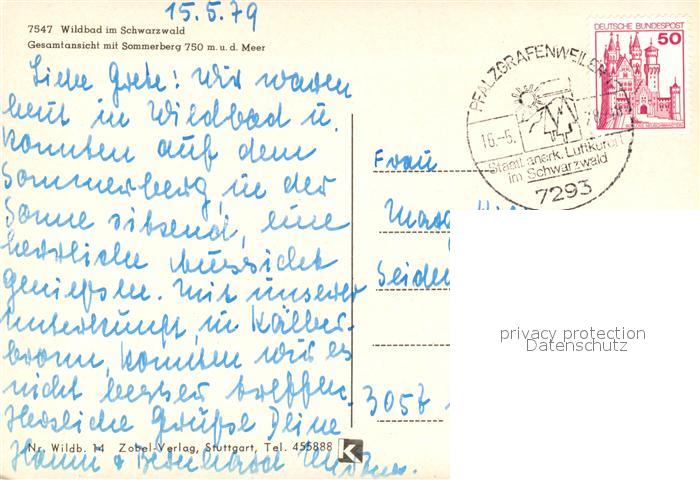 15.5.79
7547 Wildbad im Schwarzwald
Gesamtansicht mit Sommerberg 750 m. u. d. Meer
Liebe Grete! Wir waren
heut in Wildbad u.
konnten auf dem
Sommerberg, in der
Sonne sitzend, eine
herrliche Aussicht
genießen. Mit unserer
Unterkunft, in Kälber-
bronn, konnten wir es
nicht besser treffen.
Herzliche Grüße Deine
Hanni + Bernhard
Nr. Wildb. 14 Zobel-Verlag, Stuttgart, Tel. 455888 K
DEUTSCHE BUNDESPOST
50
PFALZGRAFENWEILER
16.-5.
Staatl. anerk. Luftkurort
im Schwarzwald
7293
Frau
Seiden
3057
privacy protection
Datenschutz